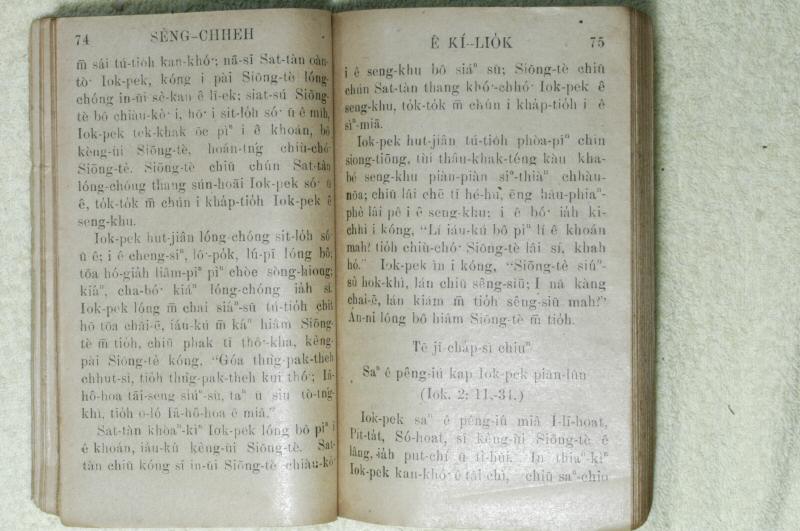 74 SÈNG-CHHEH
m̄ sái tú-tio̍h kan-khó͘; nā-sī Sat-tàn oàn-
tò͘ Iok-pek, kóng i pài Siōng-tè lóng-
chóng in-ūi sè-kan ê lī-ek; siat-sú Siōng-
tè bô chiàu-kò͘ i, hō͘ i sit-lo̍h só͘ ū ê mih,
Iok-pek tek-khak ōe pìⁿ i ê khoán, bô
kèng-ùi Siōng-tè, hoán-tńg chiù-chó͘
Siōng-tè. Siōng-tè chiū chún Sat-tàn
lóng-chóng thang sún-hāi Iok-pek só͘ ū
ê, to̍k-to̍k m̄ chún i kha̍p-tio̍h Iok-pek ê
seng-khu.
Iok-pek hut-jiân lóng-chóng sit-lo̍h só͘
ū ê; i ê cheng-siⁿ, lô͘-po̍k, lú-pī lóng bô;
tōa hó-gia̍h liâm-piⁿ pìⁿ chòe sòng-hiong;
kiáⁿ, cha-bó͘ kiáⁿ lóng-chóng iáh sí.
Iok-pek lóng m̄ chai siáⁿ-sū tú-tio̍h chit
hō tōa châi-ē, iáu-kú m̄ káⁿ hiâm Siōng-
tè m̄ tio̍h, chiū phak tī thô͘-kha, kèng-
pài Siōng-tè kóng, “Góa thǹg-pak-theh
chhut-sì, tio̍h thǹg-pak-theh kui thó͘; Iâ-
hô-hoa tāi-seng siúⁿ-sù, taⁿ ū siu tò-tńg-
khì, tio̍h o-ló Iâ-hô-hoa ê miâ.”
Sat-tàn khòaⁿ-kìⁿ Iok-pek lóng bô pìⁿ i
ê khoán, iáu-kú kèng-ùi Siōng-tè. Sat-
tàn chiū kóng sī in-ūi Siōng-tè chiàu-kò͘
Ê KÍ-LIO̍K 75
i ê seng-khu bô siáⁿ sū; Siōng-tè chiū
chún Sat-tàn thang khó͘-chhó͘ Iok-pek ê
seng-khu, to̍k-to̍k m̄ chún i kha̍p-tio̍h i ê
sìⁿ-miā.
Iok-pek hut-jiân tú-tio̍h phòa-pīⁿ chin
siong-tiōng, tùi thâu-khak-téng kàu kha-
bé seng-khu piàn-piàn siⁿ-thiàⁿ chhàu-
nōa; chiū lâi chē tī hé-hu, ēng hâu-phiaⁿ-
phè lâi pê i ê seng-khu; i ê bó͘ iáh kì-
chhì i kóng, “Lí iáu-kú bô pìⁿ lí ê khoán
mah! tio̍h chiù-chó͘ Siōng-tè lâi sí, khah
hó.” Iok-pek ìn i kóng, “Siōng-tè siúⁿ-
sù hok-khì, lán chiū sêng-siū; I nā kàng
chai-ē, lán kiám m̄ tio̍h sêng-siū mah?”
Án-ni lóng bô hiâm Siōng-tè m̄ tio̍h.
Tē jī-cha̍p-sì chiuⁿ
Saⁿ ê pêng-iú kap Iok-pek piàn-lūn
(Iok. 2: 11-34.)
Iok-pek saⁿ ê pêng-iú miâ I-lī-hoat,
Pit-ta̍t, Só-hoat, sī kèng-ùi Siōng-tè ê
lâng, iáh put-chí ū tì-hūi. In thiaⁿ-kìⁿ
Iok-pek kan-khó͘ ê tāi-chì, chiū saⁿ-chio